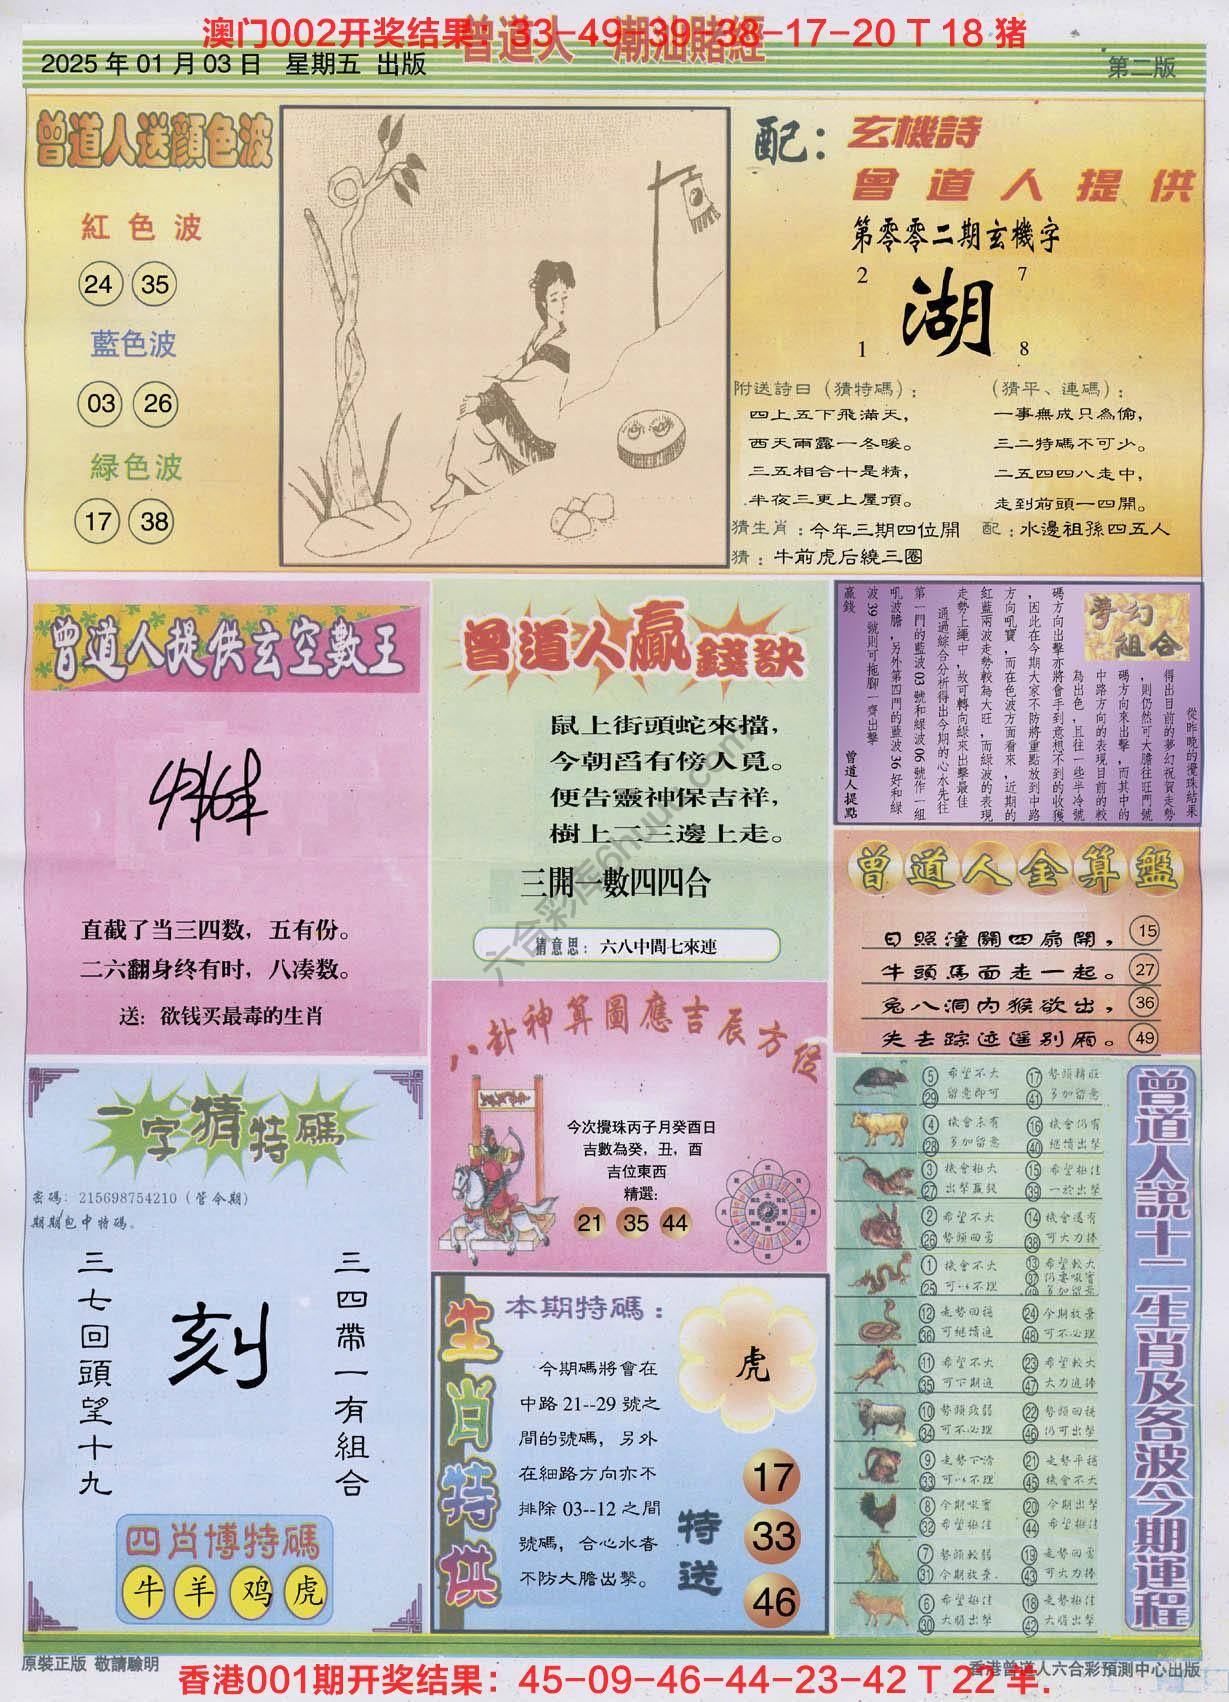 澳门002开奖结果：33-49-39-38-17-20 T 18 猪
曾道人 潮汕賭經
2025 年 01 月 03 日 星期五 出版
第二版
曾道人送顏色波
紅色波
24 35
藍色波
03 26
緑色波
17 38
配：玄機詩
曾道人提供
第零零二期玄機字
2 7
湖
1 8
附送詩曰（猜特碼）：
四上五下飛滿天，
西天雨露一冬暖。
三五相合十是精，
半夜三更上屋頂。
（猜平、連碼）：
一事無成只為偷，
三二特碼不可少。
二五四四八走中，
走到前頭一四開。
猜生肖：今年三期四位開 配：水邊祖孫四五人
猜：牛前虎后繞三圈
曾道人提供玄空數王
直截了当三四数，五有份。
二六翻身终有时，八凑数。
送：欲钱买最毒的生肖
曾道人贏錢訣
鼠上街頭蛇來擋，
今朝舀有傍人覓。
便告靈神保吉祥，
樹上二三邊上走。
三開一數四四合
猜意思：六八中間七來連
夢幻組合
從昨晚的攪珠結果
得出目前的夢幻祝賀走勢
，則仍然可大膽往旺門號
碼方向來出擊，而其中的
中路方向的表現目前的較
為出色，且往一些半冷號
碼方向出擊亦將會手到意想不到的收獲
，因此在今期大家不防將重點放到中路
方向吼寶，而在色波方面看來，近期的
紅藍兩波走勢較為大旺，而綠波的表現
走勢上繩中，故可轉向綠來出擊最佳
通過綜合分析得出今期的心水先往
第一門的藍波 03 號和綠波 06 號作一組
吼波膽，另外第四門的藍波 36 好和綠
波 39 號則可拖腳一齊出擊
贏錢
曾道人提點
曾道人金算盤
日照潼關四扇開， 15
牛頭馬面走一起。 27
兔八洞内猴欲出， 36
失去踪迹遥别厢。 49
八卦神算圖應吉辰方位
今次攪珠丙子月癸酉日
吉數為癸，丑，酉
吉位東西
精選：
21 35 44
一字猜特碼
密碼：215698754210（管今期）
期期包中特碼。
三七回頭望十九
刻
三四帶一有組合
四肖博特碼
牛 羊 鸡 虎
生肖特供
本期特碼：
虎
今期碼將會在
中路 21--29 號之
間的號碼，另外
在細路方向亦不
排除 03--12 之間
號碼，合心水者
不防大膽出擊。
特送
17
33
46
曾道人說十二生肖及各波今期運程
5 希望不大 17 勢頭精旺
29 留意即可 41 多加留意
4 機會未有 16 機會仍有
28 多加留意 40 継續出擊
3 機會極大 15 希望極佳
27 出擊贏錢 39 一於出擊
2 希望不大 14 機會還有
26 勢頭回勇 38 可大力捧
1 機會不大 13 希望較大
25 可以不理 37 仍要吼實
多加留意
12 走勢回穩 24 今期放棄
36 可継續追 48 可不必理
11 希望不大 23 希望較大
35 可下期追 47 大力追捧
10 勢頭致弱 22 勢頭回穩
34 可不必理 46 仍可出擊
9 走勢下滑 21 走勢平穩
33 可以不理 45 機會不大
8 今期吼實 20 今期出擊
32 希望極佳 44 希望極佳
7 勢頭較弱 19 走勢回勇
31 今期放棄. 43 可大力捧
6 希望極佳 18 走勢極佳
30 大膽出擊 42 大膽出擊
六合彩库6huuu.com
原裝正版 敬請驗明
香港曾道人六合彩預測中心出版
香港001期开奖结果：45-09-46-44-23-42 T 22 羊.